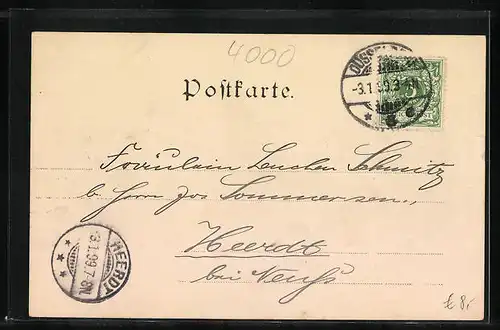 4000
DÜSSELD
-3.1.99.3-
Postkarte.
Fräulein Lenchen Schmitz
b. Herrn Jos Sommersen
Heerdt
bei Neuss
HEERDT
-3.1.99.7-8N.
€ 8,-